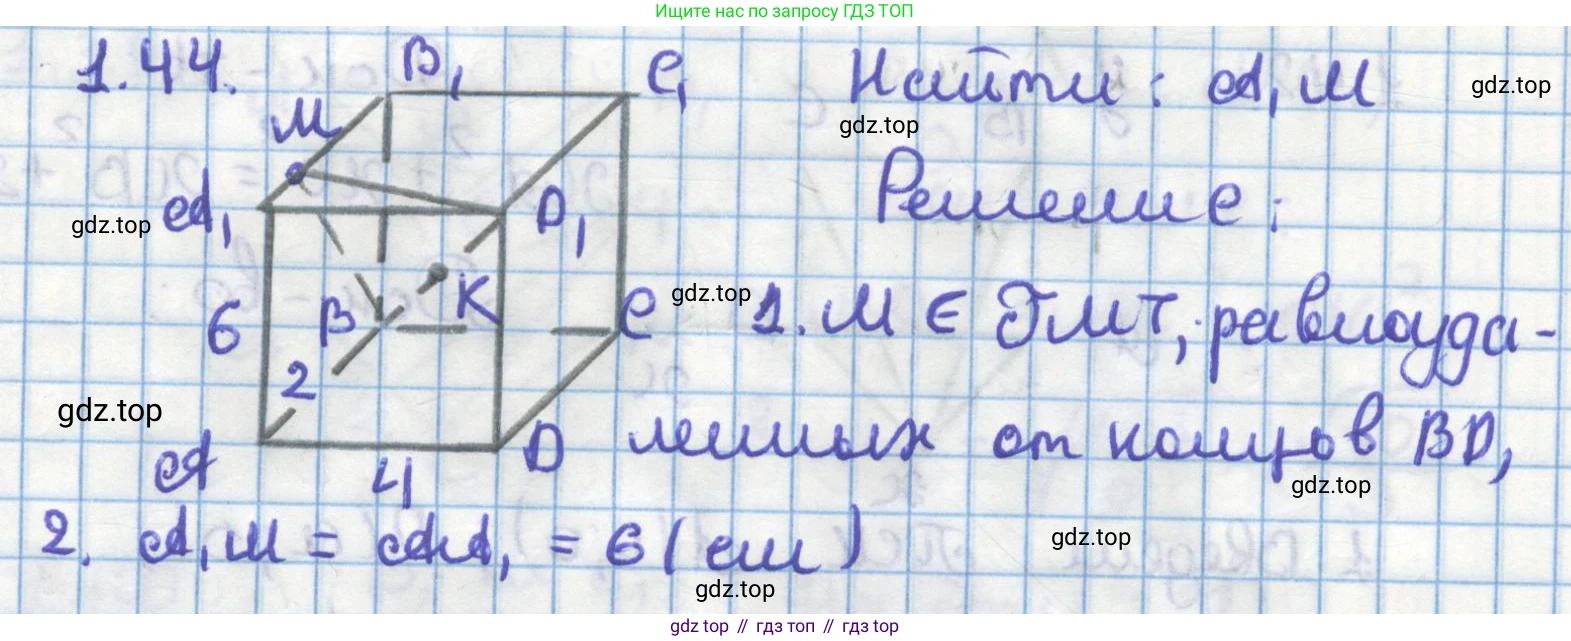 Ищите нас по запросу ГДЗ ТОП
1.44.
B₁
C₁
Найти: A₁M
gdz.top
M
gdz.top
A₁
D₁
Решение:
gdz.top
6
B
K
C
gdz.top
1. M ∈ ГМТ, равноуда-
2
gdz.top
ленных от концов BD₁
A
4
D
gdz.top
2. A₁M = AA₁ = 6 (см)
gdz.top
gdz.top
gdz top // гдз топ // гдз top